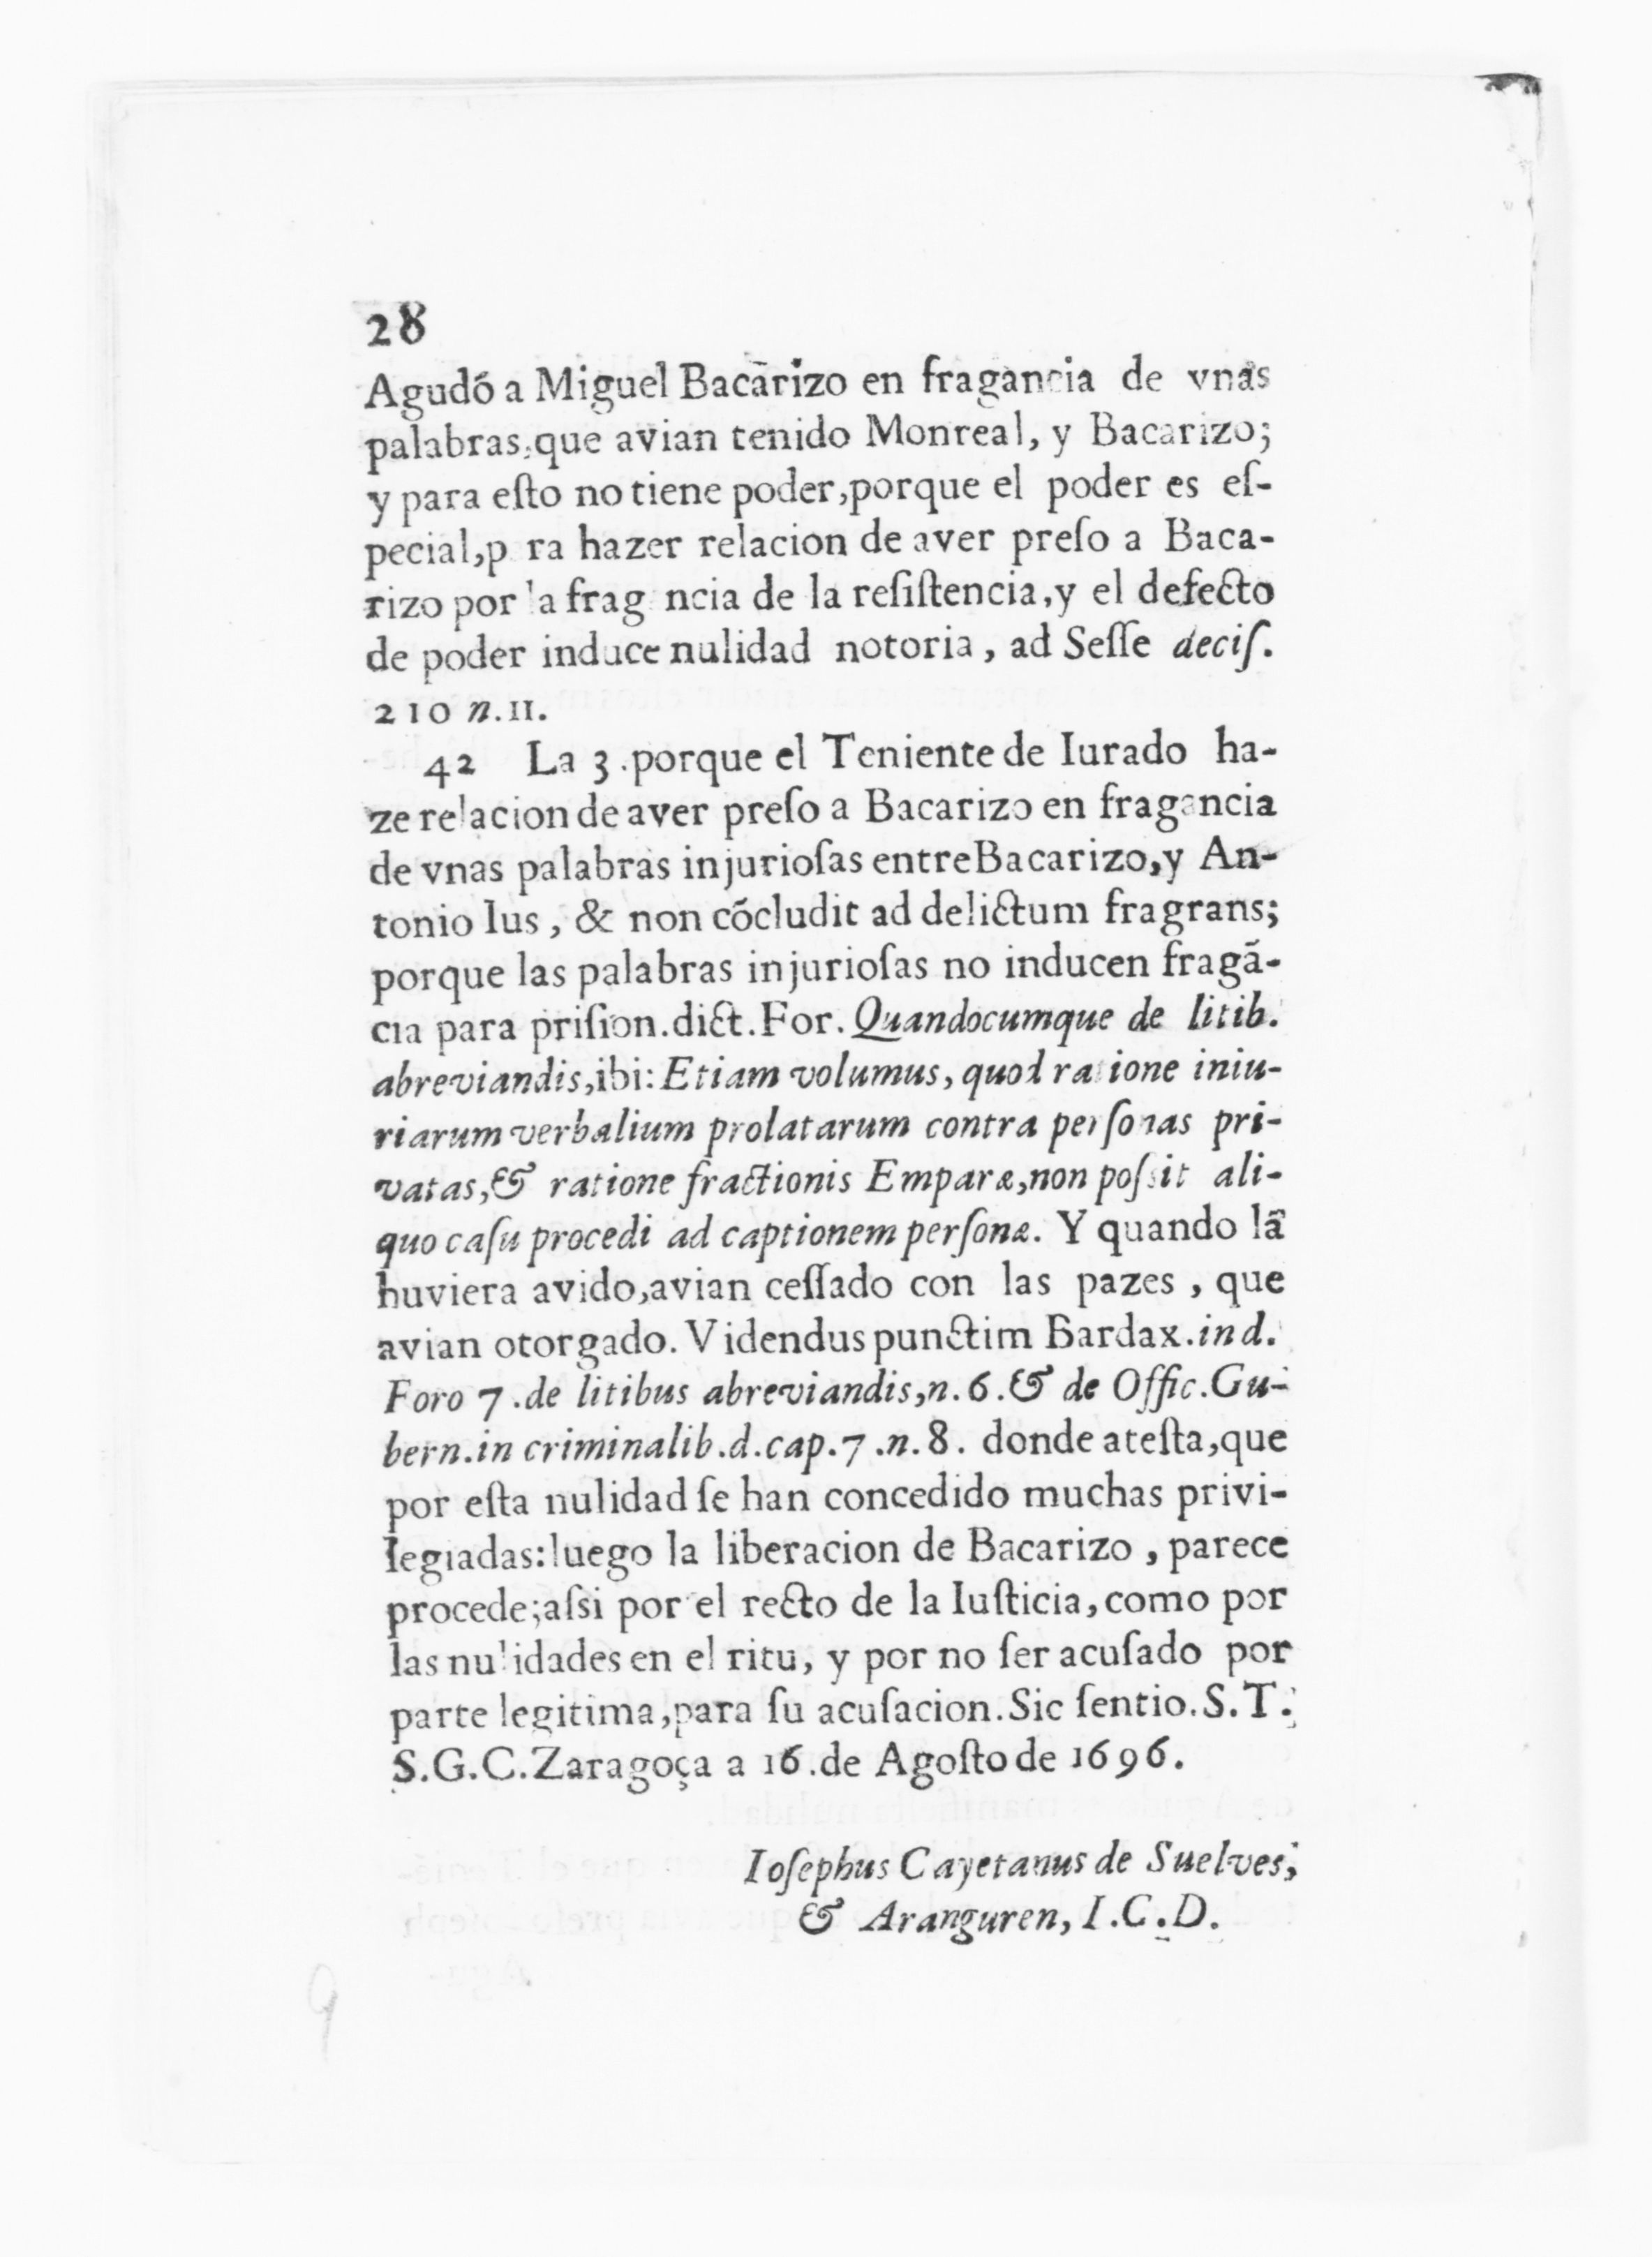 28
Agudó a Miguel Bacarizo en fragancia de vnas
palabras,que avian tenido Monreal, y Bacarizo;
y para eſto no tiene poder,porque el poder es eſ-
pecial,p ra hazer relacion de aver preſo a Baca-
rizo por la frag ncia de la reſiſtencia,y el defecto
de poder induce nulidad notoria, ad Seſſe deciſ.
210 n.11.
42 La 3.porque el Teniente de Iurado ha-
ze relacion de aver preſo a Bacarizo en fragancia
de vnas palabras injurioſas entre Bacarizo,y An-
tonio Ius, & non cõcludit ad delictum fragrans;
porque las palabras injurioſas no inducen fragã-
cia para priſion.dict.For.Quandocumque de litib.
abreviandis,ibi:Etiam volumus, quod ratione iniu-
riarum verbalium prolatarum contra perſonas pri-
vatas,& ratione fractionis Emparæ,non poſsit ali-
quo caſu procedi ad captionem perſonæ. Y quando la
huviera avido,avian ceſſado con las pazes, que
avian otorgado. Videndus punctim Bardax.in d.
Foro 7.de litibus abreviandis,n.6.& de Offic.Gu-
bern.in criminalib.d.cap.7.n.8. donde ateſta,que
por eſta nulidad ſe han concedido muchas privi-
legiadas:luego la liberacion de Bacarizo, parece
procede;aſsi por el recto de la Iuſticia,como por
las nulidades en el ritu, y por no ſer acuſado por
parte legitima,para ſu acuſacion.Sic ſentio.S.T.
S.G.C.Zaragoça a 16.de Agoſto de 1696.
Ioſephus Cayetanus de Suelves,
& Aranguren, I.C.D.
9